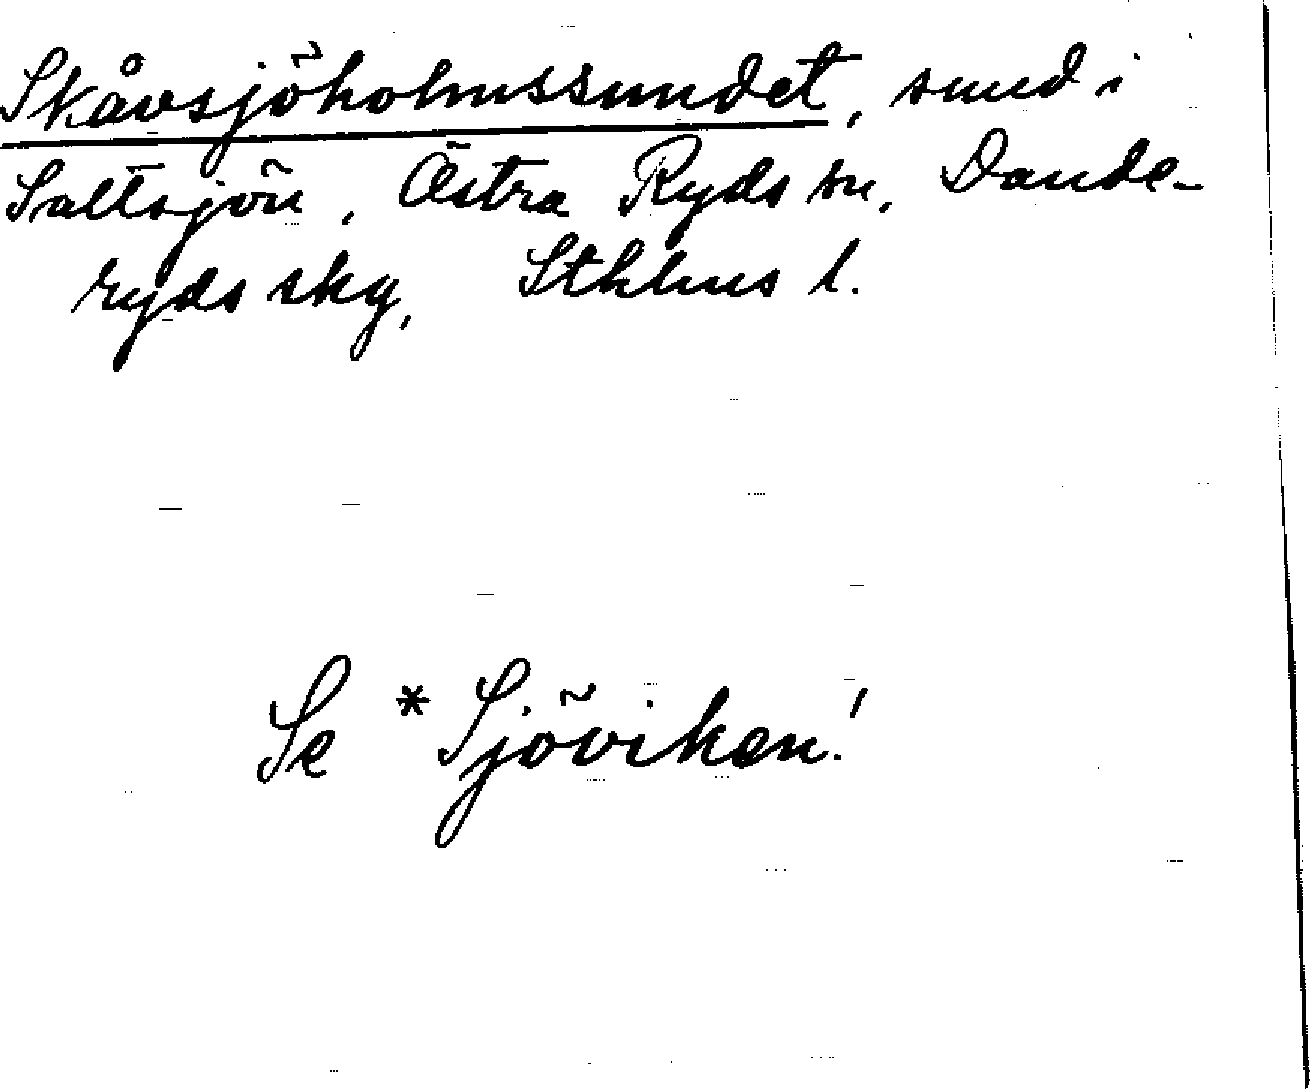 Skåvsjöholmssundet, sund i
Saltsjön, Östra Ryds sn, Dande-
ryds skg, Sthlms l.
Se *Sjöviken!